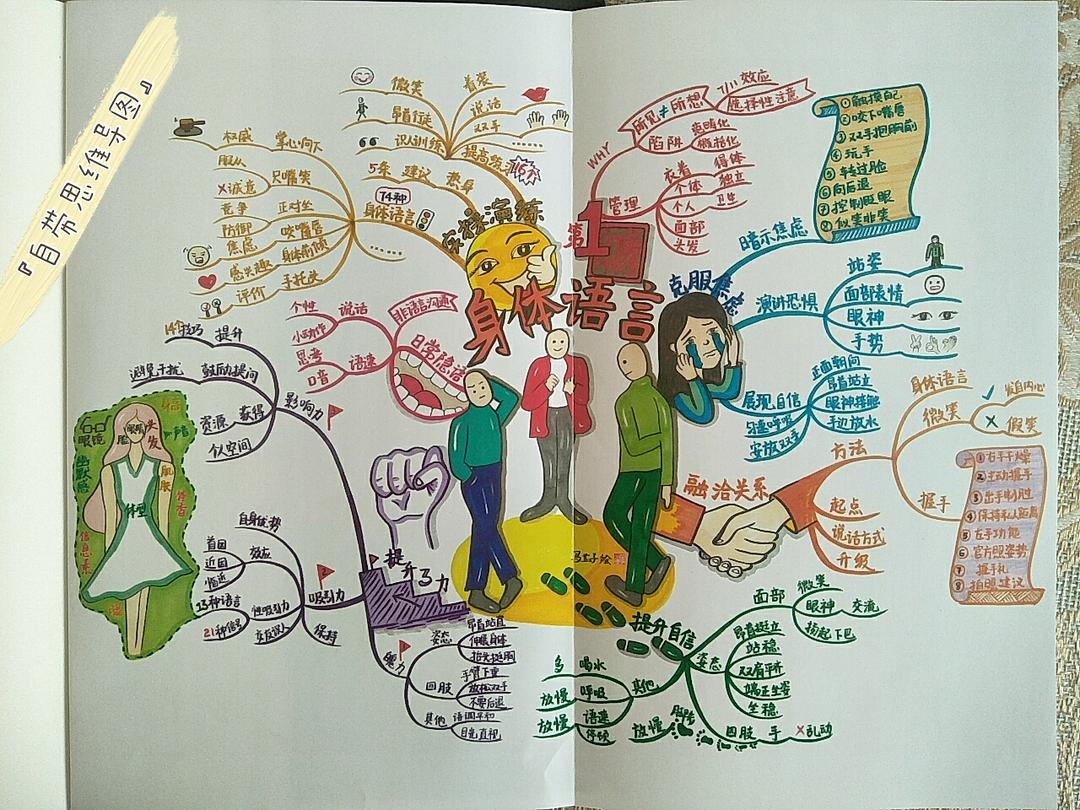 『自带思维导图』
身体语言
第1
管理
WHY
所见≠所想
7/11 效应
选择性注意
陷阱
衣着
得体
个体
独立
个人
卫生
面部
头发
克服焦虑
暗示焦虑
①触摸自己
②咬下嘴唇
③双手抱胸前
④玩手
⑤转过脸
⑥向后退
⑦控制眨眼
⑧似笑非笑
演讲恐惧
站姿
面部表情
眼神
手势
展现自信
正面朝向
昂首站立
眼神接触
手边放水
安放双手
融洽关系
方法
身体语言
微笑
✓ 发自内心
× 假笑
握手
①右手干燥
②主动握手
③出手制胜
④保持私人距离
⑤左手功能
⑥官方照姿势
⑦握手礼
⑧拍照建议
起点
说话方式
升级
提升自信
面部
微笑
眼神
交流
扬起下巴
姿态
昂首挺立
站稳
双肩平齐
端正坐姿
坐稳
四肢
手
×乱动
脚步
放慢
其他
多
喝水
放慢
呼吸
放慢
语速
停顿
提升3力
影响力
提升
14个技巧
鼓励提问
避免干扰
获得
资源
个人空间
吸引力
自身优势
效应
首因
近因
性吸引力
13种语言
21种信号
保持
魅力
姿态
昂首站直
伸展身体
抬头挺胸
四肢
手臂下垂
放松双手
不要后退
其他
语调平和
目光直视
眼镜
头发
声音
幽默感
体型
肌肤
信息素
日常隐语
非语言沟通
说话
个性
小动作
语速
思考
口音
实操演练
提高练习
16个
微笑
昂首行走
识人训练
着装
说话
双手
热身
建议
5条
74种
身体语言
掌心向下
权威
服从
只嘴笑
×诚意
正对坐
竞争
防御
咬嘴唇
焦虑
身体前倾
感兴趣
手托头
评价